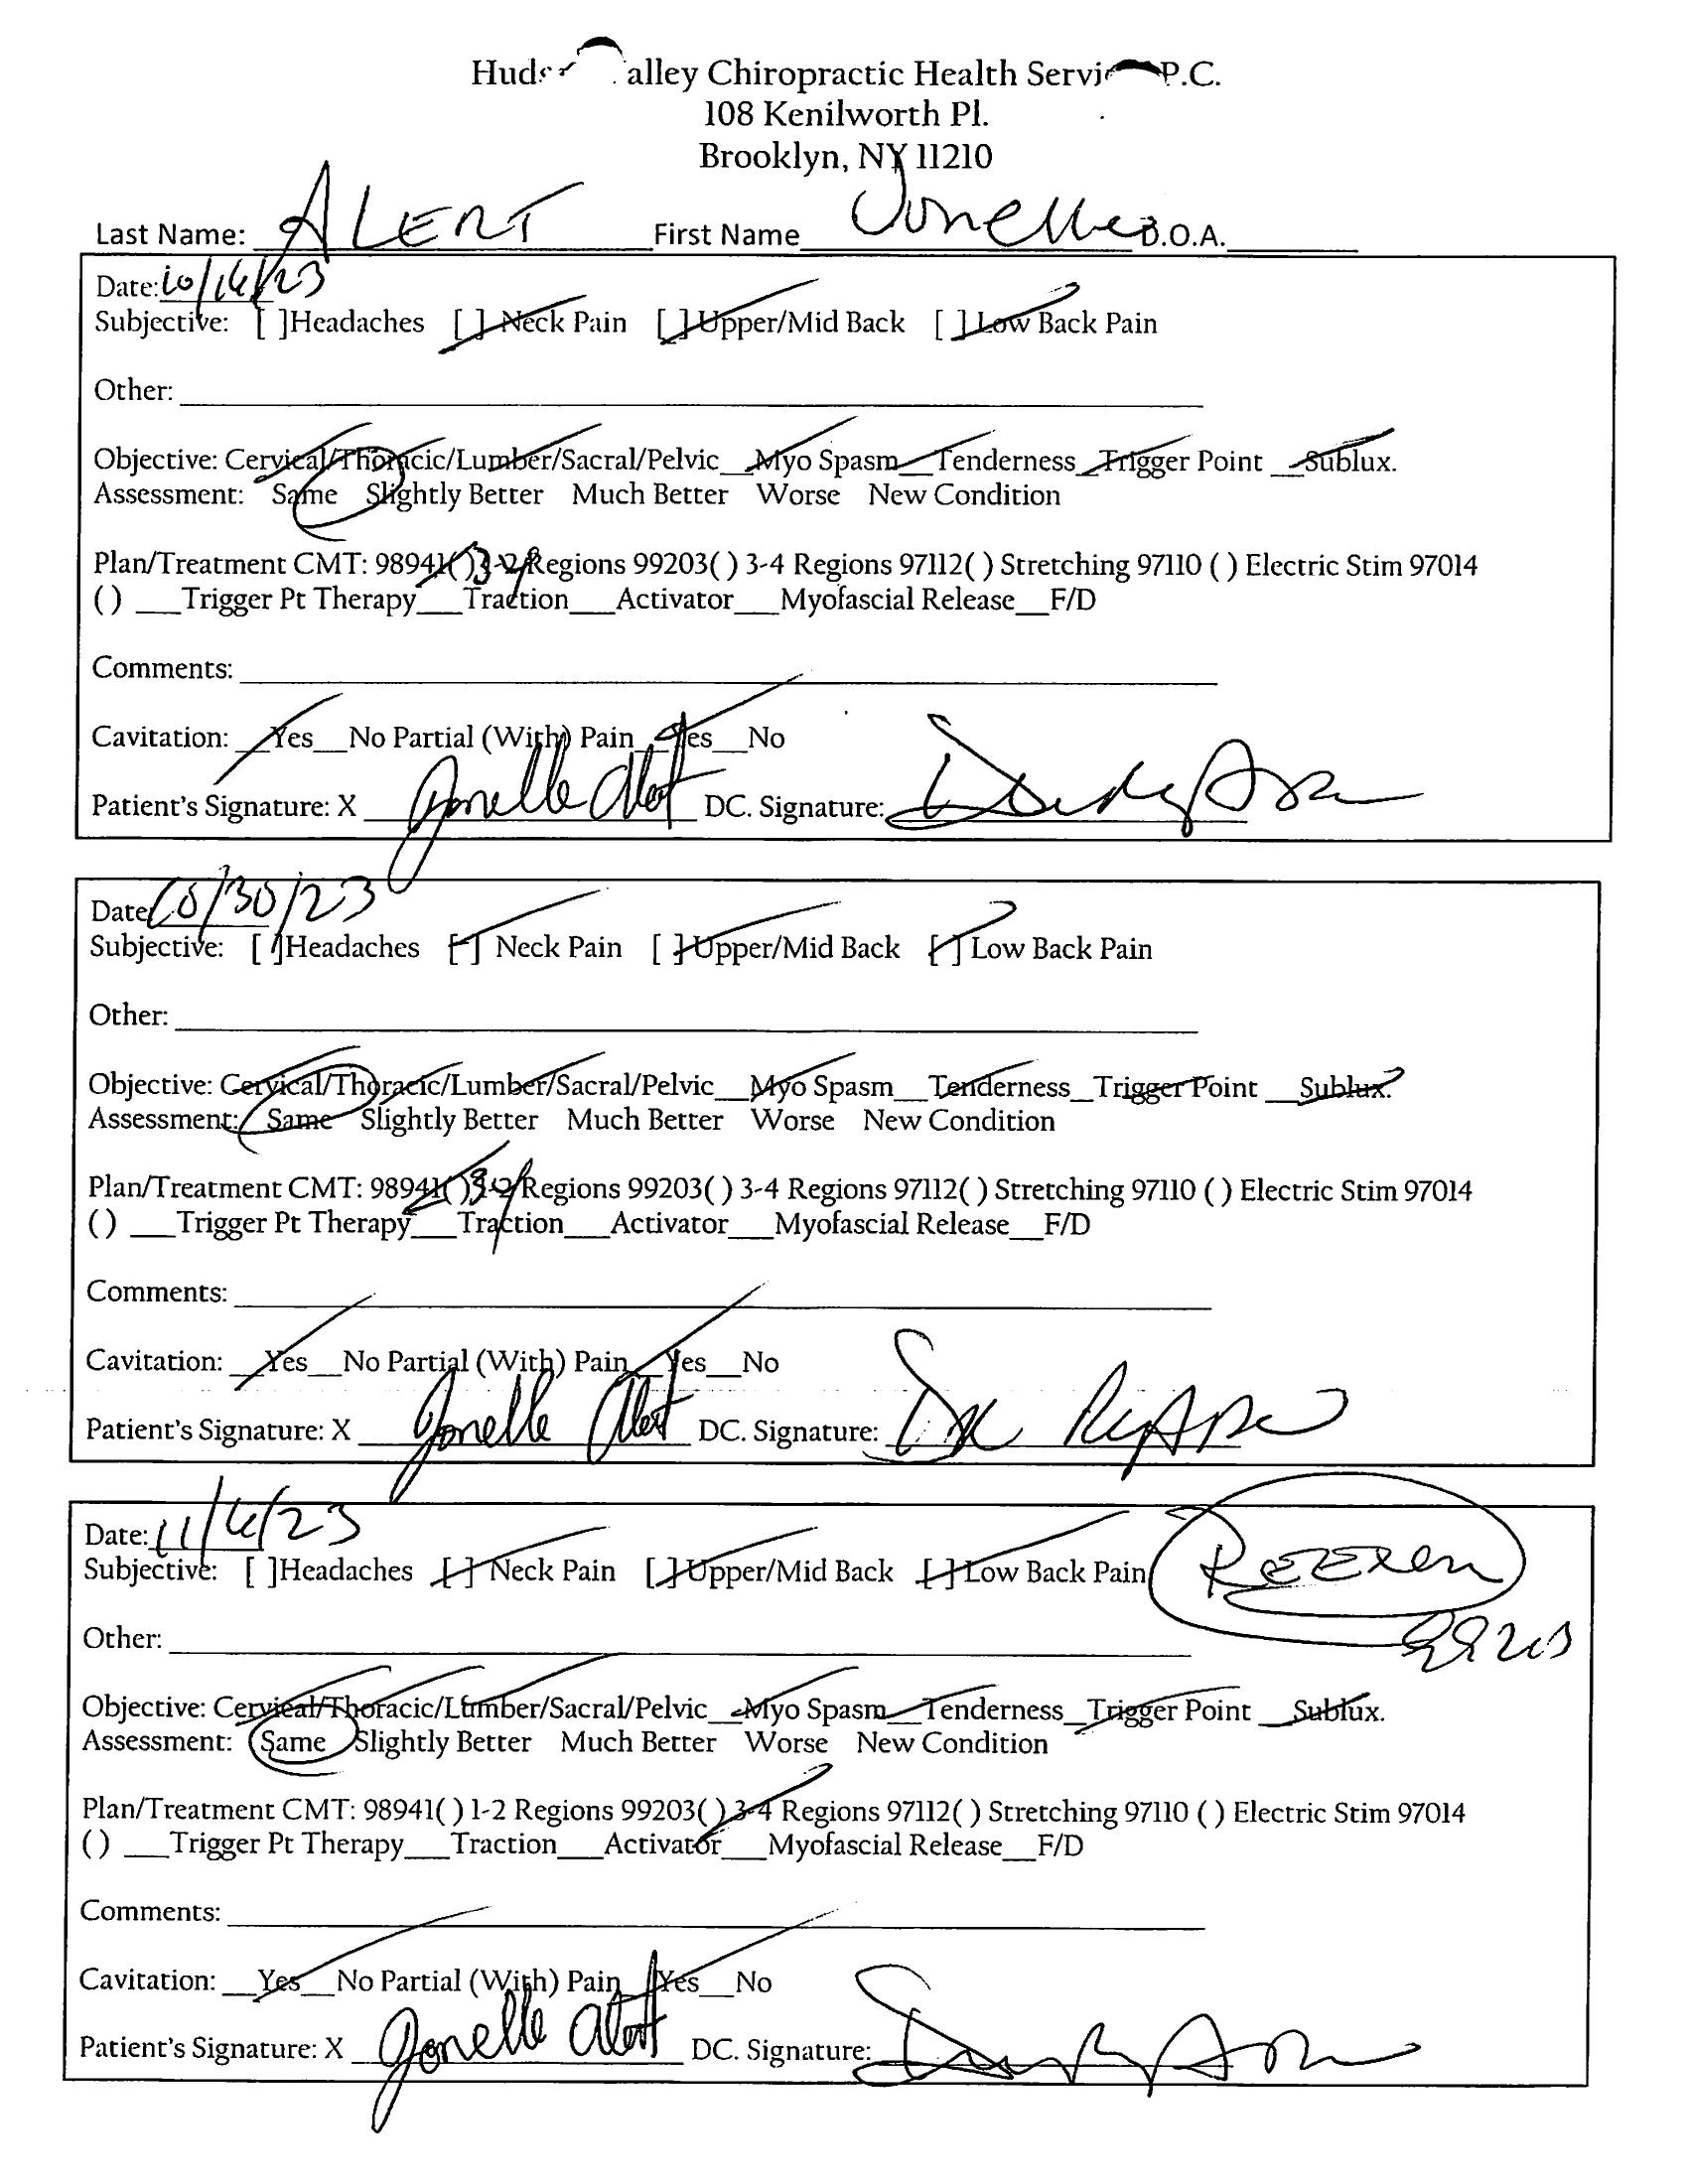 alley Chiropractic Health P.C.
108 Kenilworth Pl.
Brooklyn, NY 11210
Last Name: ALERT First Name Jonelle D.O.A.
Date: 10/16/23
Subjective: [ ]Headaches [ ] Neck Pain [ ] Upper/Mid Back [ ] Low Back Pain
Other:
Objective: Cervical/Thoracic/Lumber/Sacral/Pelvic__Myo Spasm__Tenderness_Trigger Point __Sublux.
Assessment: Same Slightly Better Much Better Worse New Condition
Plan/Treatment CMT: 98941( ) 3-4 Regions 99203( ) 3-4 Regions 97112( ) Stretching 97110 ( ) Electric Stim 97014
( ) ___Trigger Pt Therapy___Traction___Activator___Myofascial Release__F/D
Comments:
Cavitation: __Yes__No Partial (With) Pain__Yes__No
Patient's Signature: X Jonelle Alert DC. Signature:
Date: 10/30/23
Subjective: [ ]Headaches [ ] Neck Pain [ ] Upper/Mid Back [ ] Low Back Pain
Other:
Objective: Cervical/Thoracic/Lumber/Sacral/Pelvic__Myo Spasm__Tenderness_Trigger Point __Sublux.
Assessment: Same Slightly Better Much Better Worse New Condition
Plan/Treatment CMT: 98941( ) 3-4 Regions 99203( ) 3-4 Regions 97112( ) Stretching 97110 ( ) Electric Stim 97014
( ) ___Trigger Pt Therapy___Traction___Activator___Myofascial Release__F/D
Comments:
Cavitation: __Yes__No Partial (With) Pain__Yes__No
Patient's Signature: X Jonelle Alert DC. Signature:
Date: 11/6/23
Subjective: [ ]Headaches [ ] Neck Pain [ ] Upper/Mid Back [ ] Low Back Pain
Other:
Objective: Cervical/Thoracic/Lumber/Sacral/Pelvic__Myo Spasm__Tenderness_Trigger Point __Sublux.
Assessment: Same Slightly Better Much Better Worse New Condition
Plan/Treatment CMT: 98941( ) 1-2 Regions 99203( ) 3-4 Regions 97112( ) Stretching 97110 ( ) Electric Stim 97014
( ) ___Trigger Pt Therapy___Traction___Activator___Myofascial Release__F/D
Comments:
Cavitation: __Yes__No Partial (With) Pain__Yes__No
Patient's Signature: X Jonelle Alert DC. Signature: